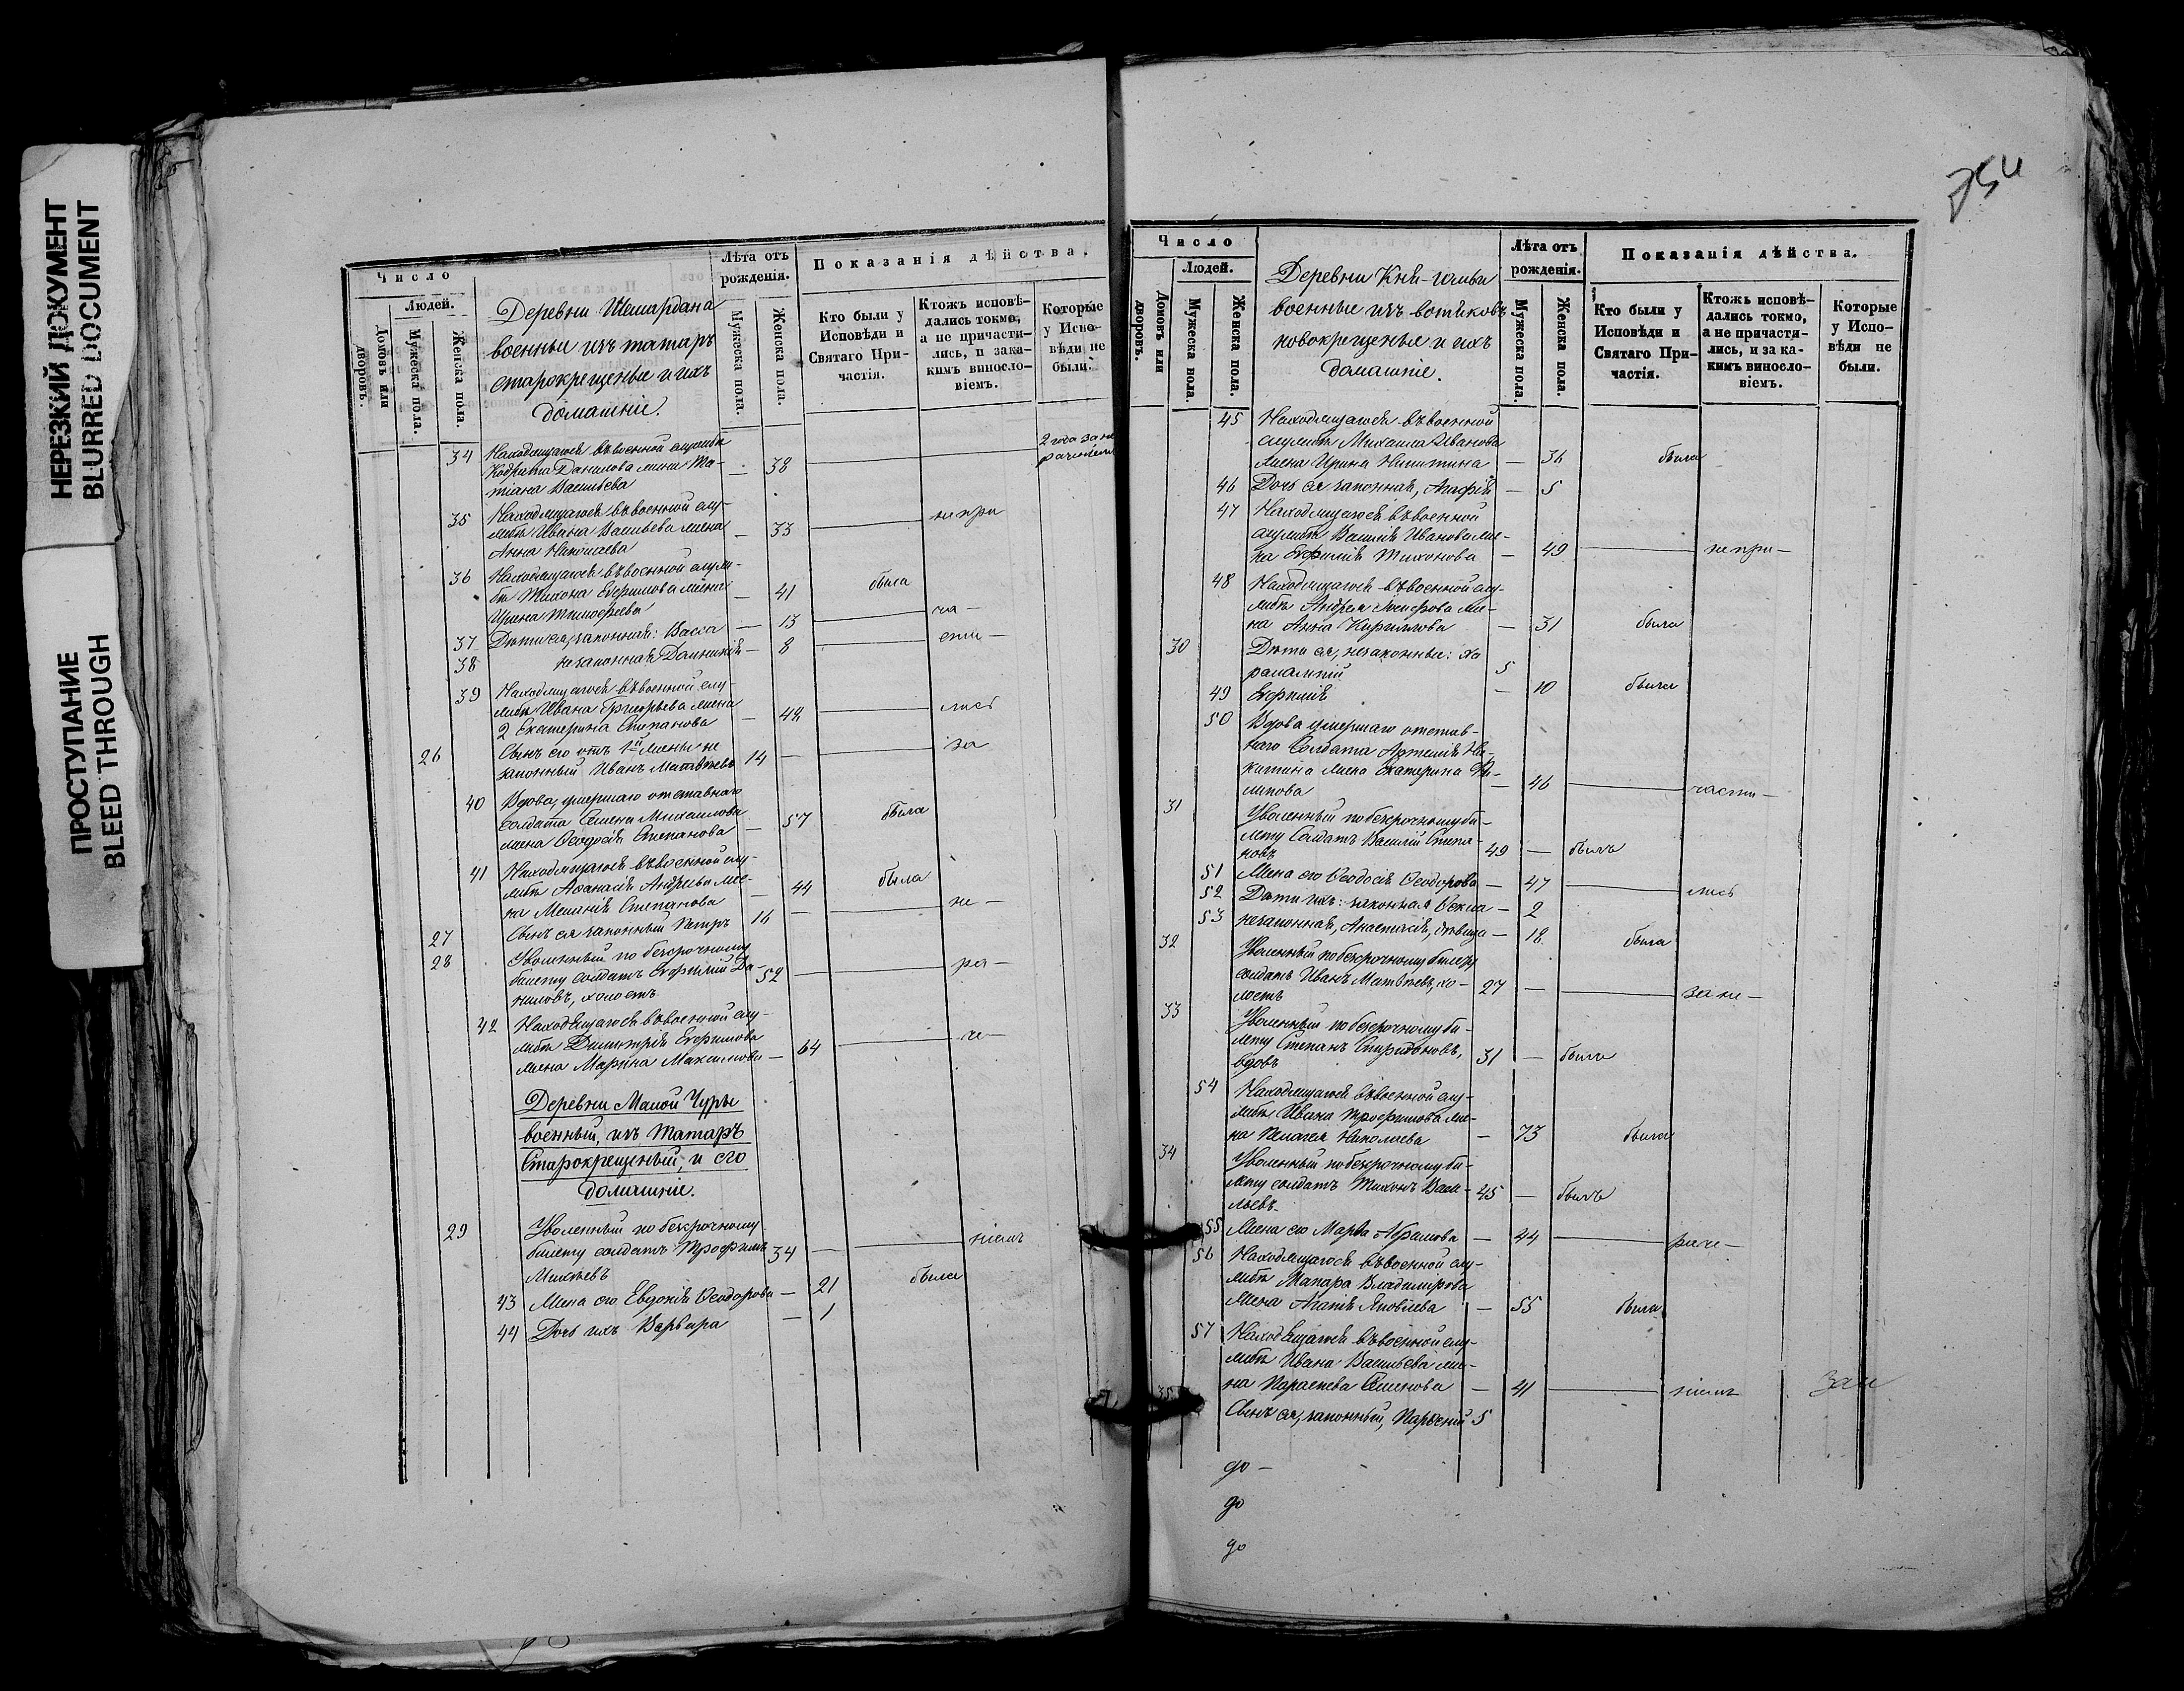 НЕРЕЗКИЙ ДОКУМЕНТ
BLURRED DOCUMENT
ПРОСТУПАНИЕ
BLEED THROUGH
Число
Людей.
Домовъ или дворовъ.
Мужеска пола.
Женска пола.
Деревни Шемардана
военные изъ татаръ
старокрещеные и ихъ
домашніе.
Лѣта отъ рожденія.
Мужеска пола.
Женска пола.
Показанія дѣйства.
Кто были у Исповѣди и Святаго Причастія.
Ктожъ исповѣдались токмо, а не причастились, и закакимъ винословіемъ.
Которые у Исповѣди не были.
34 Находящагося въ военной службѣ
Данилова жена Та- — 38 2 года за не
тіана Васильева
35 Находящагося въ военной слу-
жбѣ Ивана Васильева жена — 33 не при
Анна Николаева
36 Находящагося въ военной служ-
бѣ Тихона Ефимова жена — 41 была
Ирина Тимофеева
37 Дѣти ея, законная: Васса — 13 ча—
38 незаконная Домникія — 8 сти—
39 Находящагося въ военной слу-
жбѣ Ивана Григорьева жена
2 Екатерина Степанова — 42 лись
26 Сынъ его отъ 1й жены не
законный Иванъ Матвѣевъ 14 — за
40 Вдова, умершаго отставнаго
солдата Семена Михаилова
жена Ѳеодосія Степанова — 57 была
41 Находящагося въ военной слу-
жбѣ Аѳанасія Андреева же-
на Меланія Степанова — 44 была
27 Сынъ ея законный Петръ 16 — не—
28 Уволенный по безсрочному
билету солдатъ Ефимій Да- 52 — ра—
ниловъ, холостъ
42 Находящагося въ военной слу-
жбѣ Димитрія Ефимова
жена Марина Максимова — 64 че—
Деревни Малой Чуры
военный, изъ Татаръ
Старокрещеный, и его
домашніе.
29 Уволенный по безсрочному
билету солдатъ Трофимъ 34 — ніемъ
Михѣевъ
43 Жена его Евдокія Ѳеодорова — 21 была
44 Дочь ихъ Варвара — 1
Число
Людей.
Домовъ или дворовъ.
Мужеска пола.
Женска пола.
военные изъ вотяковъ
новокрещеные и ихъ
домашніе.
Лѣта отъ рожденія.
Мужеска пола.
Женска пола.
Показанія дѣйства.
Кто были у Исповѣди и Святаго Причастія.
Ктожъ исповѣдались токмо, а не причастились, и за какимъ винословіемъ.
Которые у Исповѣди не были.
45 Находящагося въ военной
службѣ Михаила Иванова
жена Ирина Никитина — 36 была
46 Дочь ея законная, Агафія — 5
47 Находящагося въ военной
службѣ Василія Иванова же-
на Ефимія Тихонова — 49 не при—
48 Находящагося въ военной слу-
жбѣ Андрея же-
на Анна Кириллова — 31 была
30 Дѣти ея, незаконные: Ха
ралампій 5
49 Ефимія — 10 была
50 Вдова умершаго отстав-
наго Солдата Артемія Ни-
китина жена Екатерина Фи-
липова — 46 части—
31 Уволенный по безсрочному би-
лету Солдатъ Василій Степа-
новъ 49 — былъ
51 Жена его Ѳеодосія Ѳеодорова — 47 лись
52 Дѣти ихъ: законная Ѳекла — 2
53 незаконная, Анастасія, дѣвица — 18 была
32 Уволенный по безсрочному билету
солдатъ Иванъ Матвѣевъ, хо- 27 — за не—
лостъ
33 Уволенный по безсрочному би-
лету Степанъ Спиридоновъ,
вдовъ 31 — былъ
54 Находящагося въ военной слу-
жбѣ Ивана Трофимова же-
на Пелагея Николаева — 73 была
34 Уволенный по безсрочному би-
лету солдатъ Тихонъ Васи- 45 — былъ
льевъ
55 Жена его Марѳа Абрамова — 44 раче—
56 Находящагося въ военной слу-
жбѣ Макара Владимирова
жена Агапія Яковлева — 55 была
57 Находящагося въ военной слу-
жбѣ Ивана Васильева же-
на Параскева Семенова — 41 ніемъ
35 Сынъ ея, законный, Парѳеній 5
до —
до
до